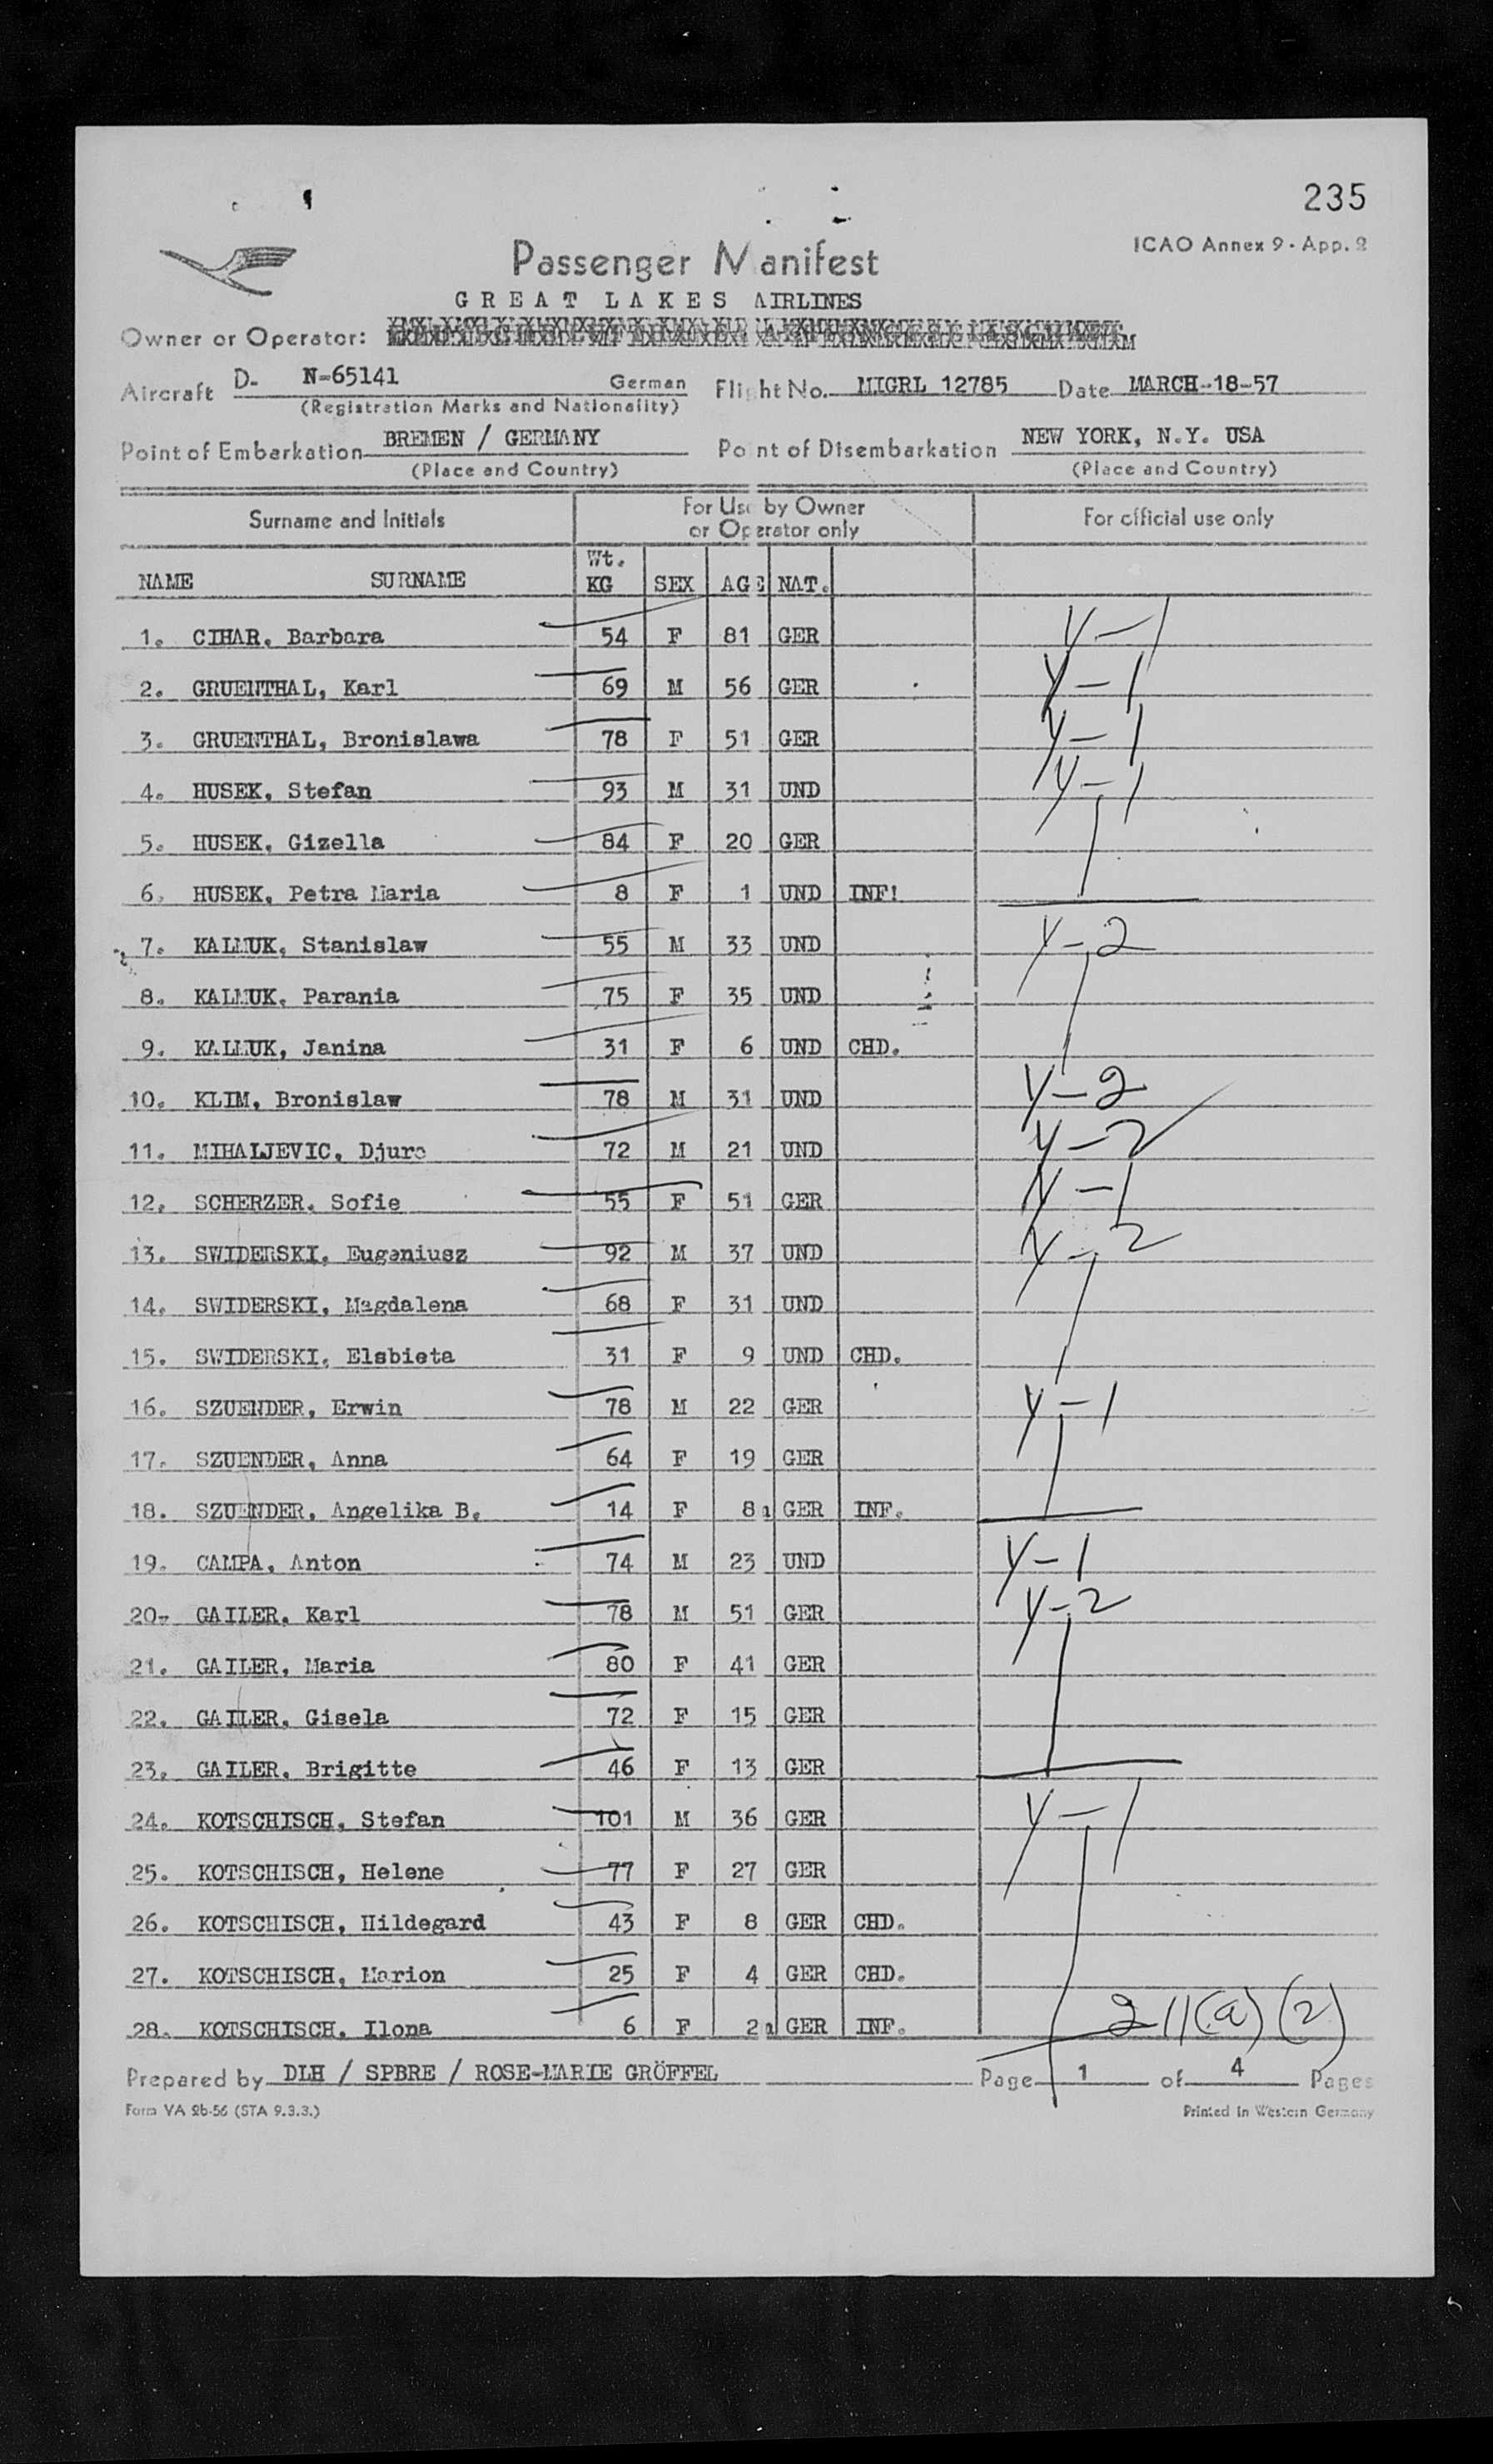 235
ICAO Annex 9 - App. 2
Passenger Manifest
GREAT LAKES AIRLINES
Owner or Operator:
Aircraft D- N-65141 German Flight No. MIGRL 12785 Date MARCH-18-57
(Registration Marks and Nationality)
Point of Embarkation BREMEN / GERMANY Point of Disembarkation NEW YORK, N.Y. USA
(Place and Country) (Place and Country)
Surname and Initials For Use by Owner or Operator only For official use only
NAME SURNAME Wt. KG SEX AGE NAT.
1. CIHAR, Barbara 54 F 81 GER Y-1
2. GRUENTHAL, Karl 69 M 56 GER Y-1
3. GRUENTHAL, Bronislawa 78 F 51 GER Y-1
4. HUSEK, Stefan 93 M 31 UND Y-1
5. HUSEK, Gizella 84 F 20 GER
6. HUSEK, Petra Maria 8 F 1 UND INF!
7. KALMUK, Stanislaw 55 M 33 UND Y-2
8. KALMUK, Parania 75 F 35 UND
9. KALMUK, Janina 31 F 6 UND CHD.
10. KLIM, Bronislaw 78 M 31 UND Y-2
11. MIHALJEVIC, Djuro 72 M 21 UND Y-2
12. SCHERZER, Sofie 55 F 51 GER Y-1
13. SWIDERSKI, Eugeniusz 92 M 37 UND Y-2
14. SWIDERSKI, Magdalena 68 F 31 UND
15. SWIDERSKI, Elsbieta 31 F 9 UND CHD.
16. SZUENDER, Erwin 78 M 22 GER Y-1
17. SZUENDER, Anna 64 F 19 GER
18. SZUENDER, Angelika B. 14 F 8 GER INF.
19. CAMPA, Anton 74 M 23 UND Y-1
20- GAILER, Karl 78 M 51 GER Y-2
21. GAILER, Maria 80 F 41 GER
22. GAILER, Gisela 72 F 15 GER
23. GAILER, Brigitte 46 F 13 GER
24. KOTSCHISCH, Stefan 101 M 36 GER Y-1
25. KOTSCHISCH, Helene 77 F 27 GER
26. KOTSCHISCH, Hildegard 43 F 8 GER CHD.
27. KOTSCHISCH, Marion 25 F 4 GER CHD.
28. KOTSCHISCH, Ilona 6 F 2 GER INF. 211(a)(2)
Prepared by DLH / SPBRE / ROSE-MARIE GRÖFFEL Page 1 of 4 Pages
Form VA 2b-56 (STA 9.3.3.) Printed in Western Germany